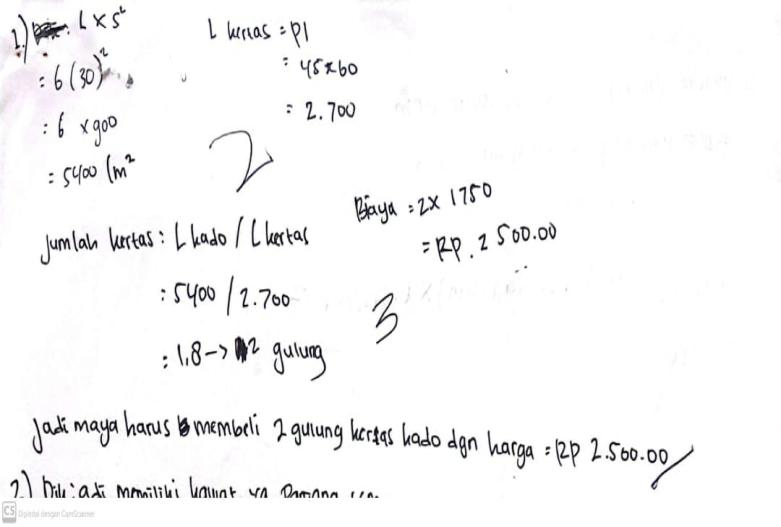 1.) L x s²
= 6 (30)²
: 6 x 900
= 5400 cm²
L kertas = pl
= 45 x 60
= 2.700
2
Jumlah kertas : L kado / L kertas
: 5400 / 2.700
: 1,8 -> 2 gulung
Biaya = 2 x 1750
= RP. 2 500.00
3
Jadi maya harus membeli 2 gulung kertas kado dgn harga = RP 2.500.00
2)
memiliki kawat
CS Dipindai dengan CamScanner